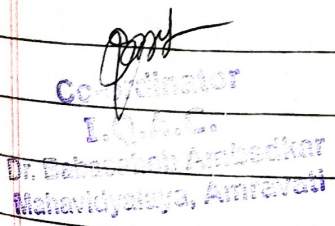 Coordinator
I.Q.A.C.
Dr. Babasaheb Ambedkar
Mahavidyalaya, Amravati